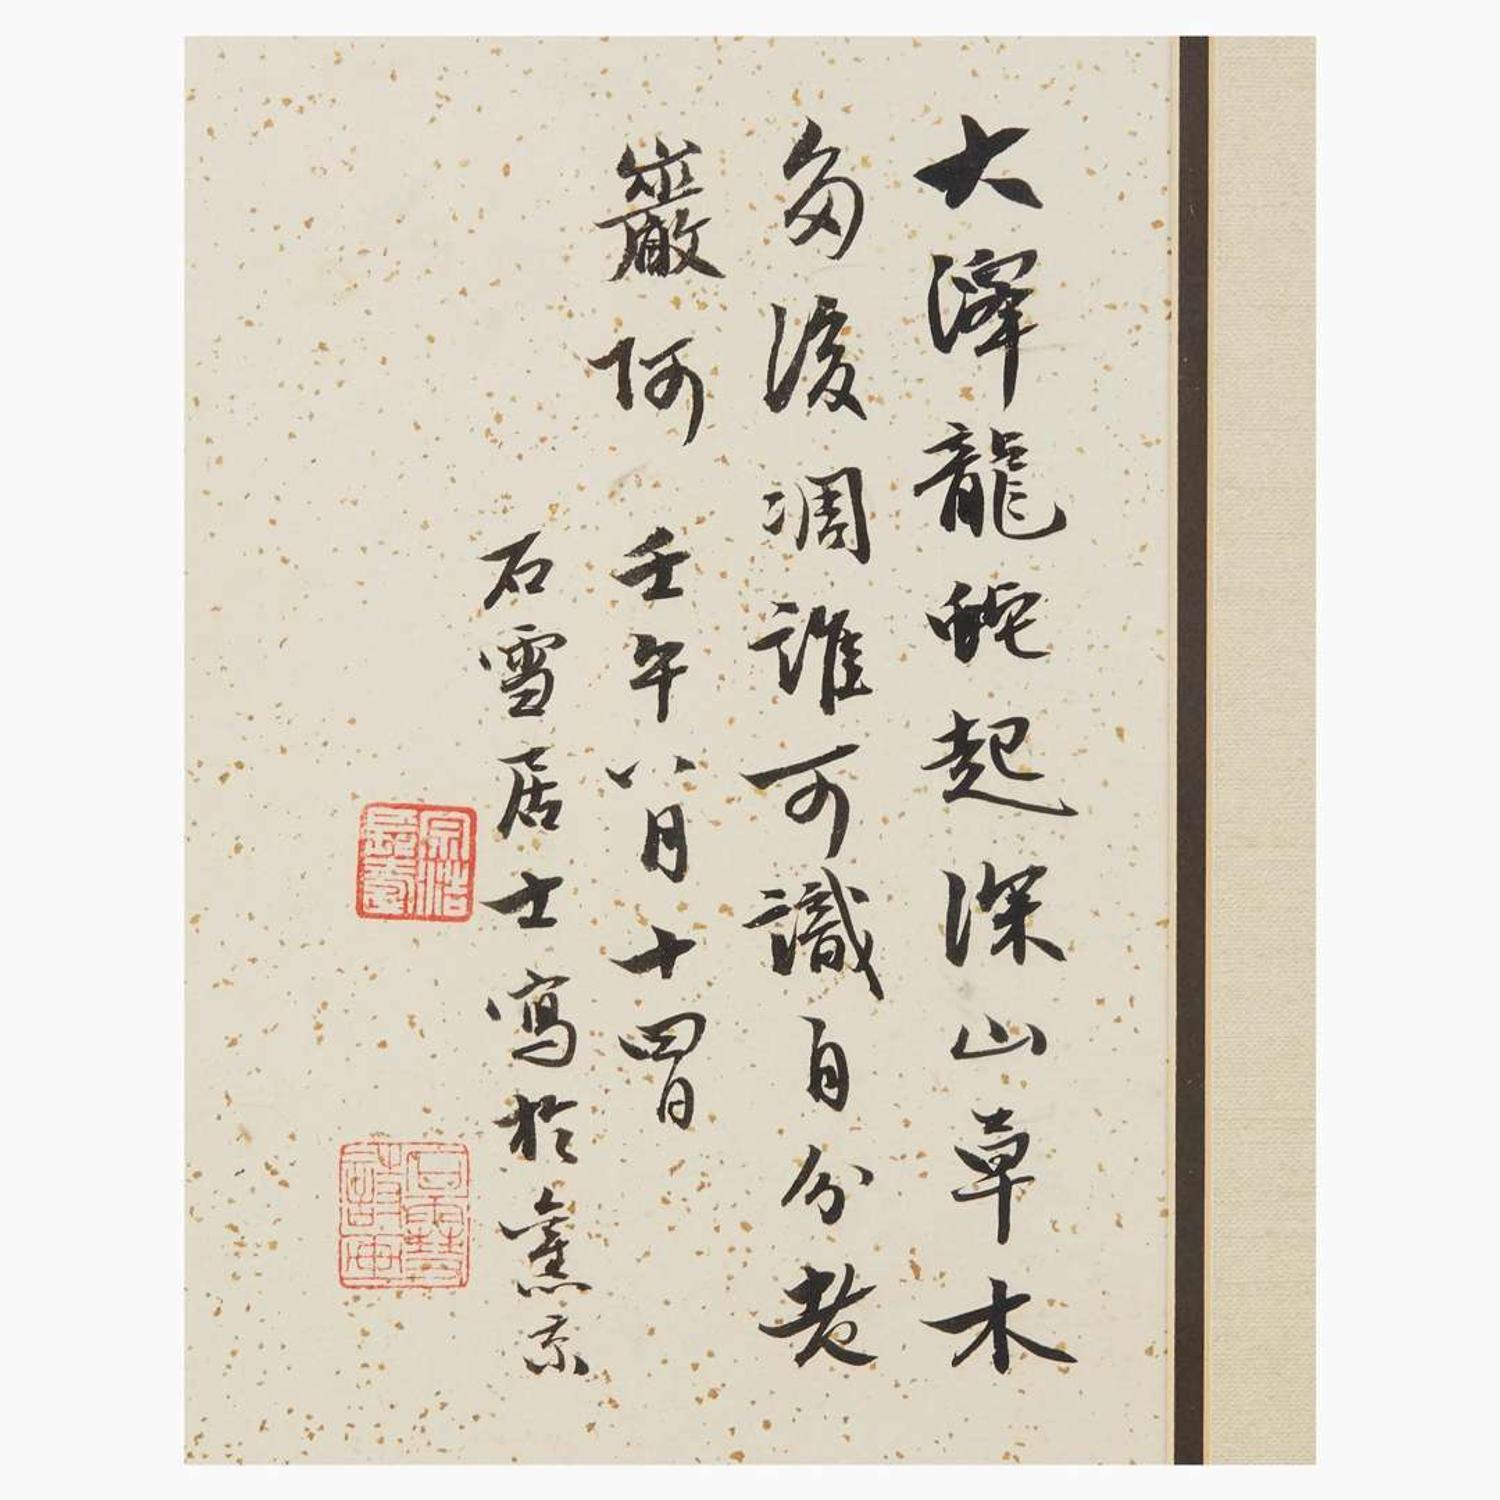 大澤龍蛇起深山草木
多後凋誰可識自分老
巖阿 壬午八月十四日
石雪居士寫於舊京
宗浩長壽